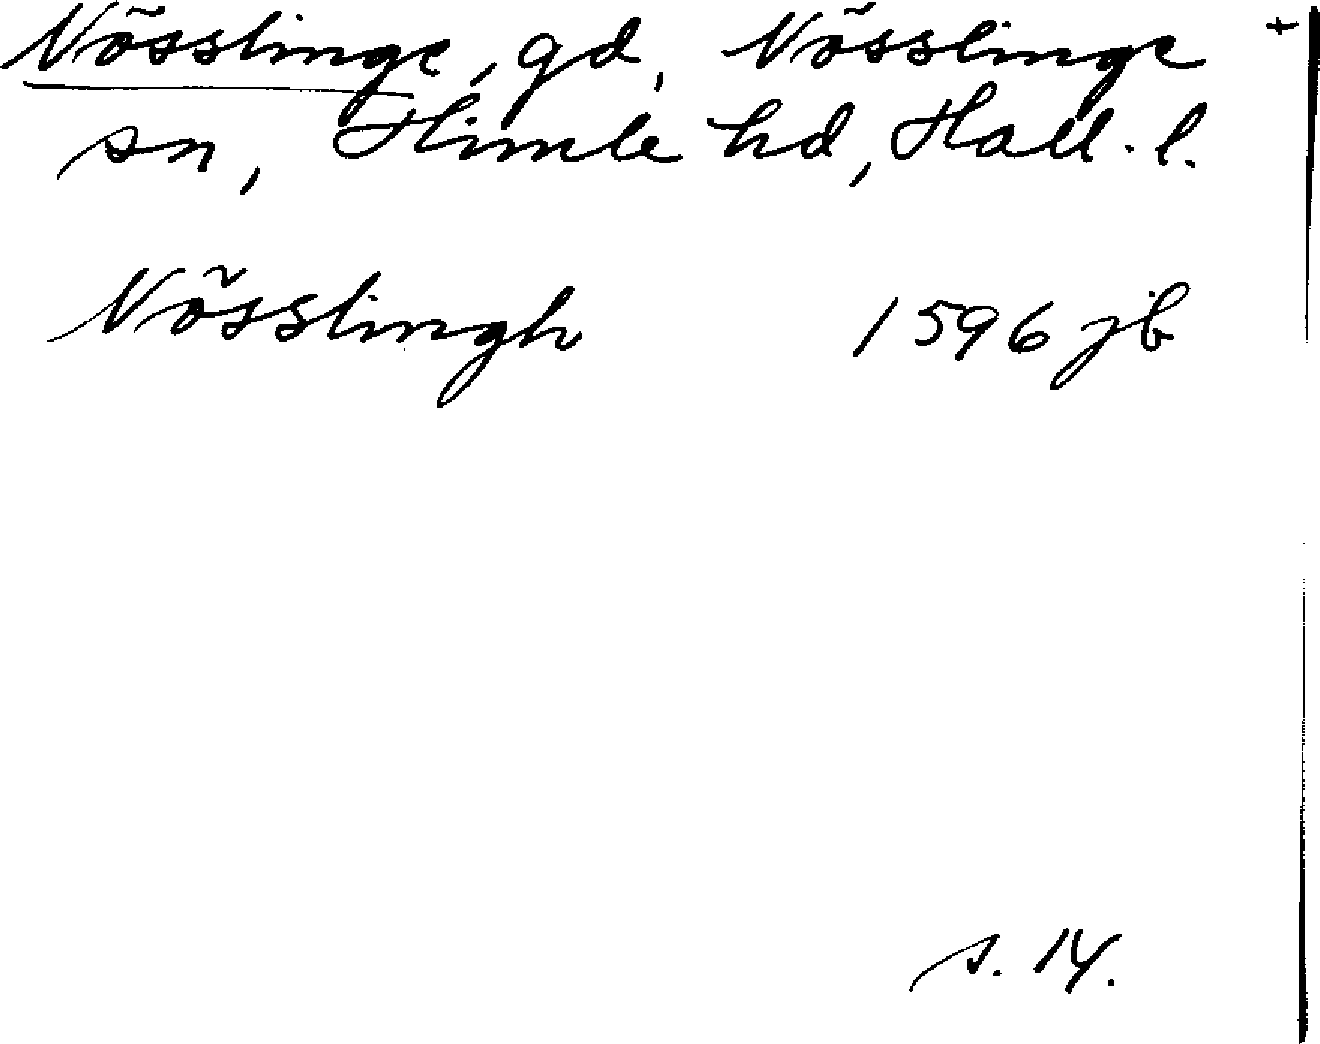 Nösslinge, gd, Nösslinge +
sn, Himle hd, Hall. l.
Nösslingh 1596 jb
s. 14.